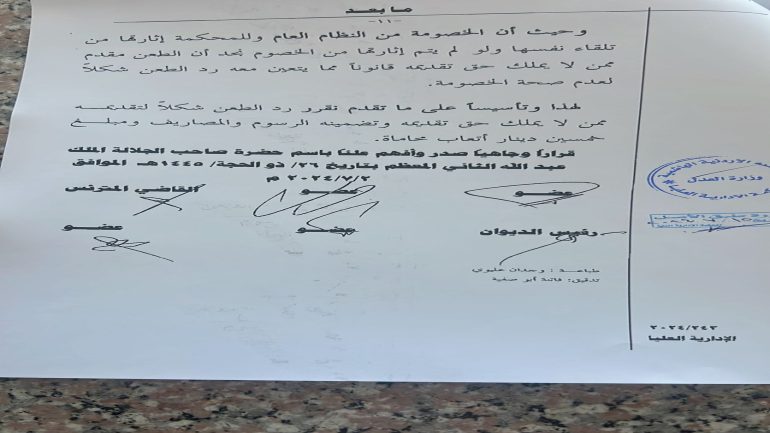 ما بعد
-١١-
وحيث أن الخصومة من النظام العام وللمحكمة إثارتها من
تلقاء نفسها ولو لم يتم إثارتها من الخصوم نجد أن الطعن مقدم
ممن لا يملك حق تقديمه قانوناً مما يتعين معه رد الطعن شكلاً
لعدم صحة الخصومة.
لهذا وتأسيساً على ما تقدم نقرر رد الطعن شكلاً لتقديمه
ممن لا يملك حق تقديمه وتضمينه الرسوم والمصاريف ومبلغ
خمسين دينار أتعاب محاماة.
قراراً وجاهياً صدر وأفهم علناً باسم حضرة صاحب الجلالة الملك
عبد الله الثاني المعظم بتاريخ ٢٦/ ذو الحجة/ ١٤٤٥هـ الموافق
٢٠٢٤/٧/٢ م
عضو عضو القاضي المترئس
رئيس الديوان عضو عضو
طباعة : وجدان عليوي
تدقيق: فاتنة أبو صفية
وزارة العدل
٢٠٢٤/٢٤٣
الإدارية العليا